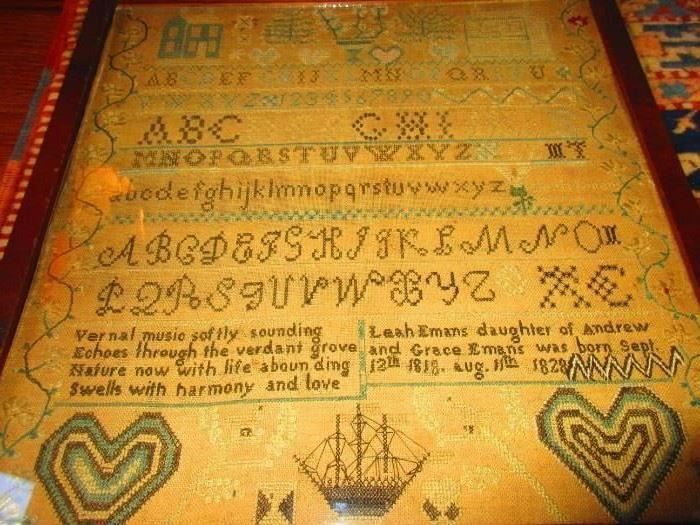 A B C D E F G H I J K L M N O P Q R S T U
V W X Y Z 1 2 3 4 5 6 7 8 9 0
A B C G H I
M N O P Q R S T U V W X Y Z
a b c d e f g h i j k l m n o p q r s t u v w x y z
A B C D E F G H I J K L M N O
P Q R S T U V W X Y Z
Vernal music softly sounding
Echoes through the verdant grove
Nature now with life abounding
Swells with harmony and love
Leah Emans daughter of Andrew
and Grace Emans was born Sept.
12th 1818. aug. 11th 1828